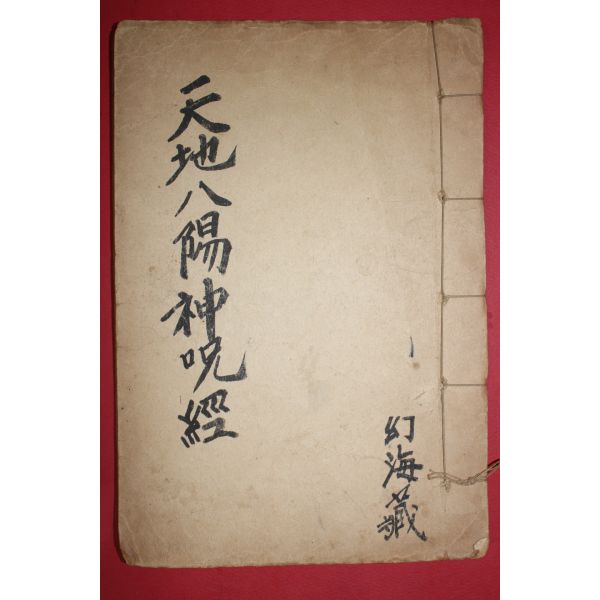 天地八陽神呪經
幻海藏